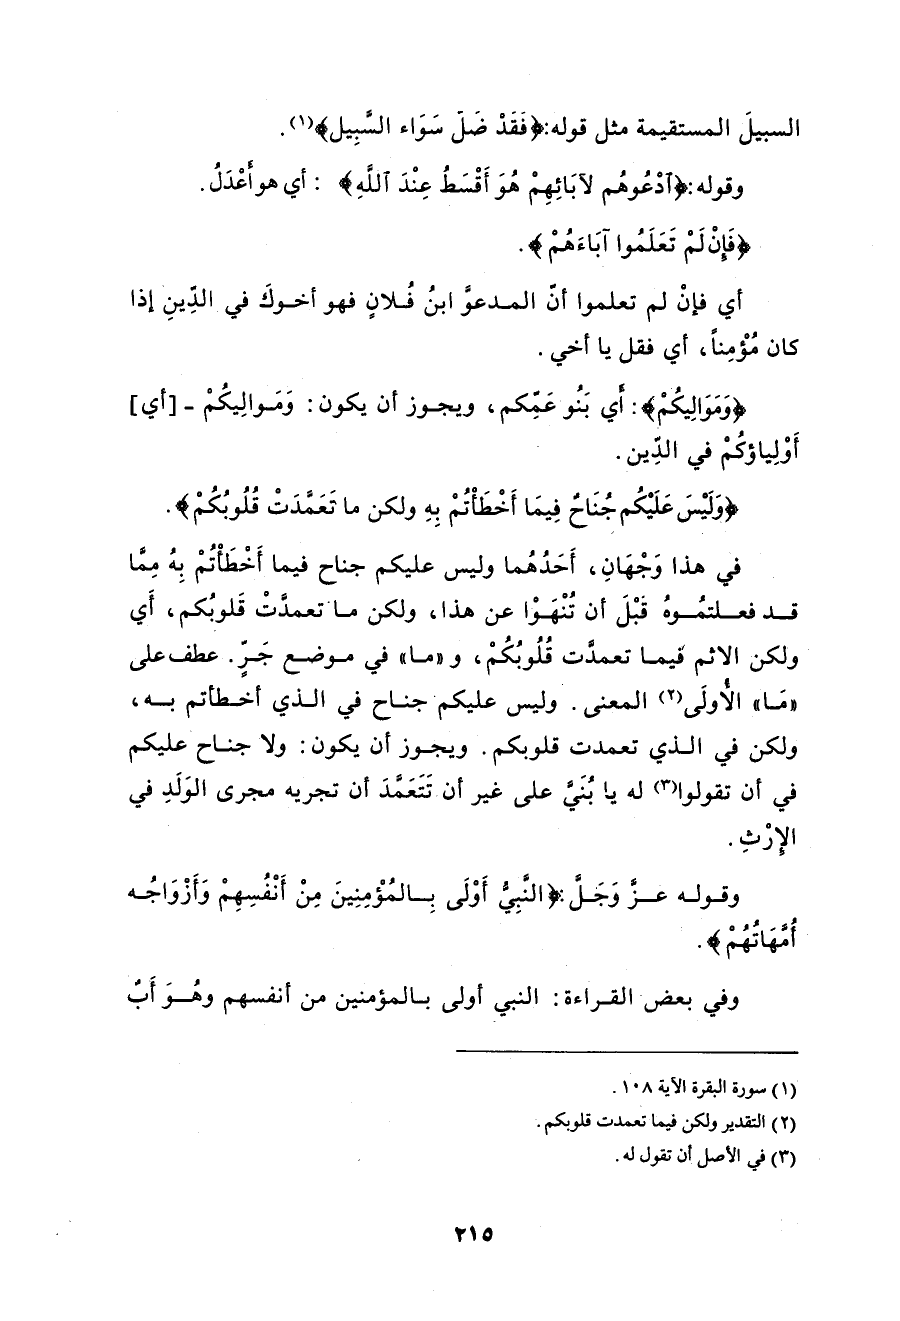 السبيلَ المستقيمة مثل قوله:﴿فَقَدْ ضَلّ سَوَاء السَّبِيل﴾(١).
وقوله:﴿ٱدْعُوهُم لآبَائِهِمْ هُوَ أَقْسَطُ عِنْدَ ٱللَّهِ﴾ : أي هو أَعْدَلُ.
﴿فَإِنْ لَمْ تَعَلَمُوا آبَاءَهُمْ﴾.
أي فإنْ لم تعلموا أنّ المدعوَّ ابنُ فُلانٍ فهو أخوكَ في الدِّينِ إذا
كان مُؤْمِناً، أي فقل يا أخي.
﴿وَمَوَالِيكُمْ﴾: أَي بَنُو عَمِّكم، ويجوز أن يكون: وَمَوالِيكُمْ - [أي]
أَوْلِياؤكُمْ في الدِّين.
﴿وَلَيْسَ عَلَيْكُم جُنَاحٌ فِيمَا أَخْطَأْتُمْ بِهِ ولكن ما تَعَمَّدَتْ قُلُوبُكُمْ﴾.
في هذا وَجْهَانِ، أَحَدُهُما وليس عليكم جناح فيما أَخْطَأْتُمْ بِهُ مِمَّا
قد فعلتمُوهُ قَبْلَ أن تُنْهَوْا عن هذا، ولكن ما تعمدَّتْ قلوبُكم، أَي
ولكن الاثم فيما تعمدَّت قُلُوبُكُمْ، و «ما» في موضع جَرٍّ. عطف على
«مَا» الأُولَى(٢) المعنى. وليس عليكم جناح في الذي أخطأتم به،
ولكن في الذي تعمدت قلوبكم. ويجوز أن يكون: ولا جناح عليكم
في أن تقولوا(٣) له يا بُنَيَّ على غير أن تَتَعَمَّدَ أن تجريه مجرى الوَلَدِ في
الإِرْثِ.
وقوله عزَّ وَجَلَّ:﴿النَّبِيُّ أَوْلَى بِالمُؤْمِنِينَ مِنْ أَنْفُسِهِمْ وَأَزْوَاجُه
أُمَّهَاتُهُمْ﴾.
وفي بعض القراءة: النبي أولى بالمؤمنين من أنفسهم وهُوَ أَبٌ
(١) سورة البقرة الآية ١٠٨.
(٢) التقدير ولكن فيما تعمدت قلوبكم.
(٣) في الأصل أن تقول له.
٢١٥